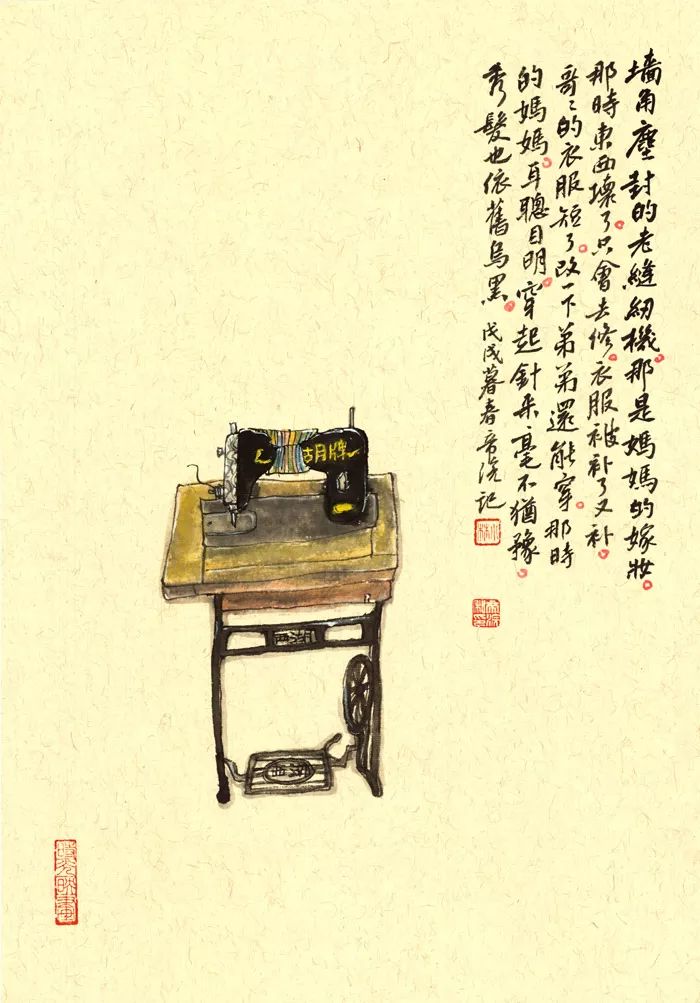 墙角塵封的老縫紉機。那是媽媽的嫁妝。
那時東西壞了。只會去修。衣服破補了又补。
哥哥的衣服短了。改一下弟弟還能穿。那時
的媽媽。耳聰目明。穿起針來毫不猶豫。
秀髮也依舊烏黑。戊戌暮春 记
胡牌
西湖
西湖